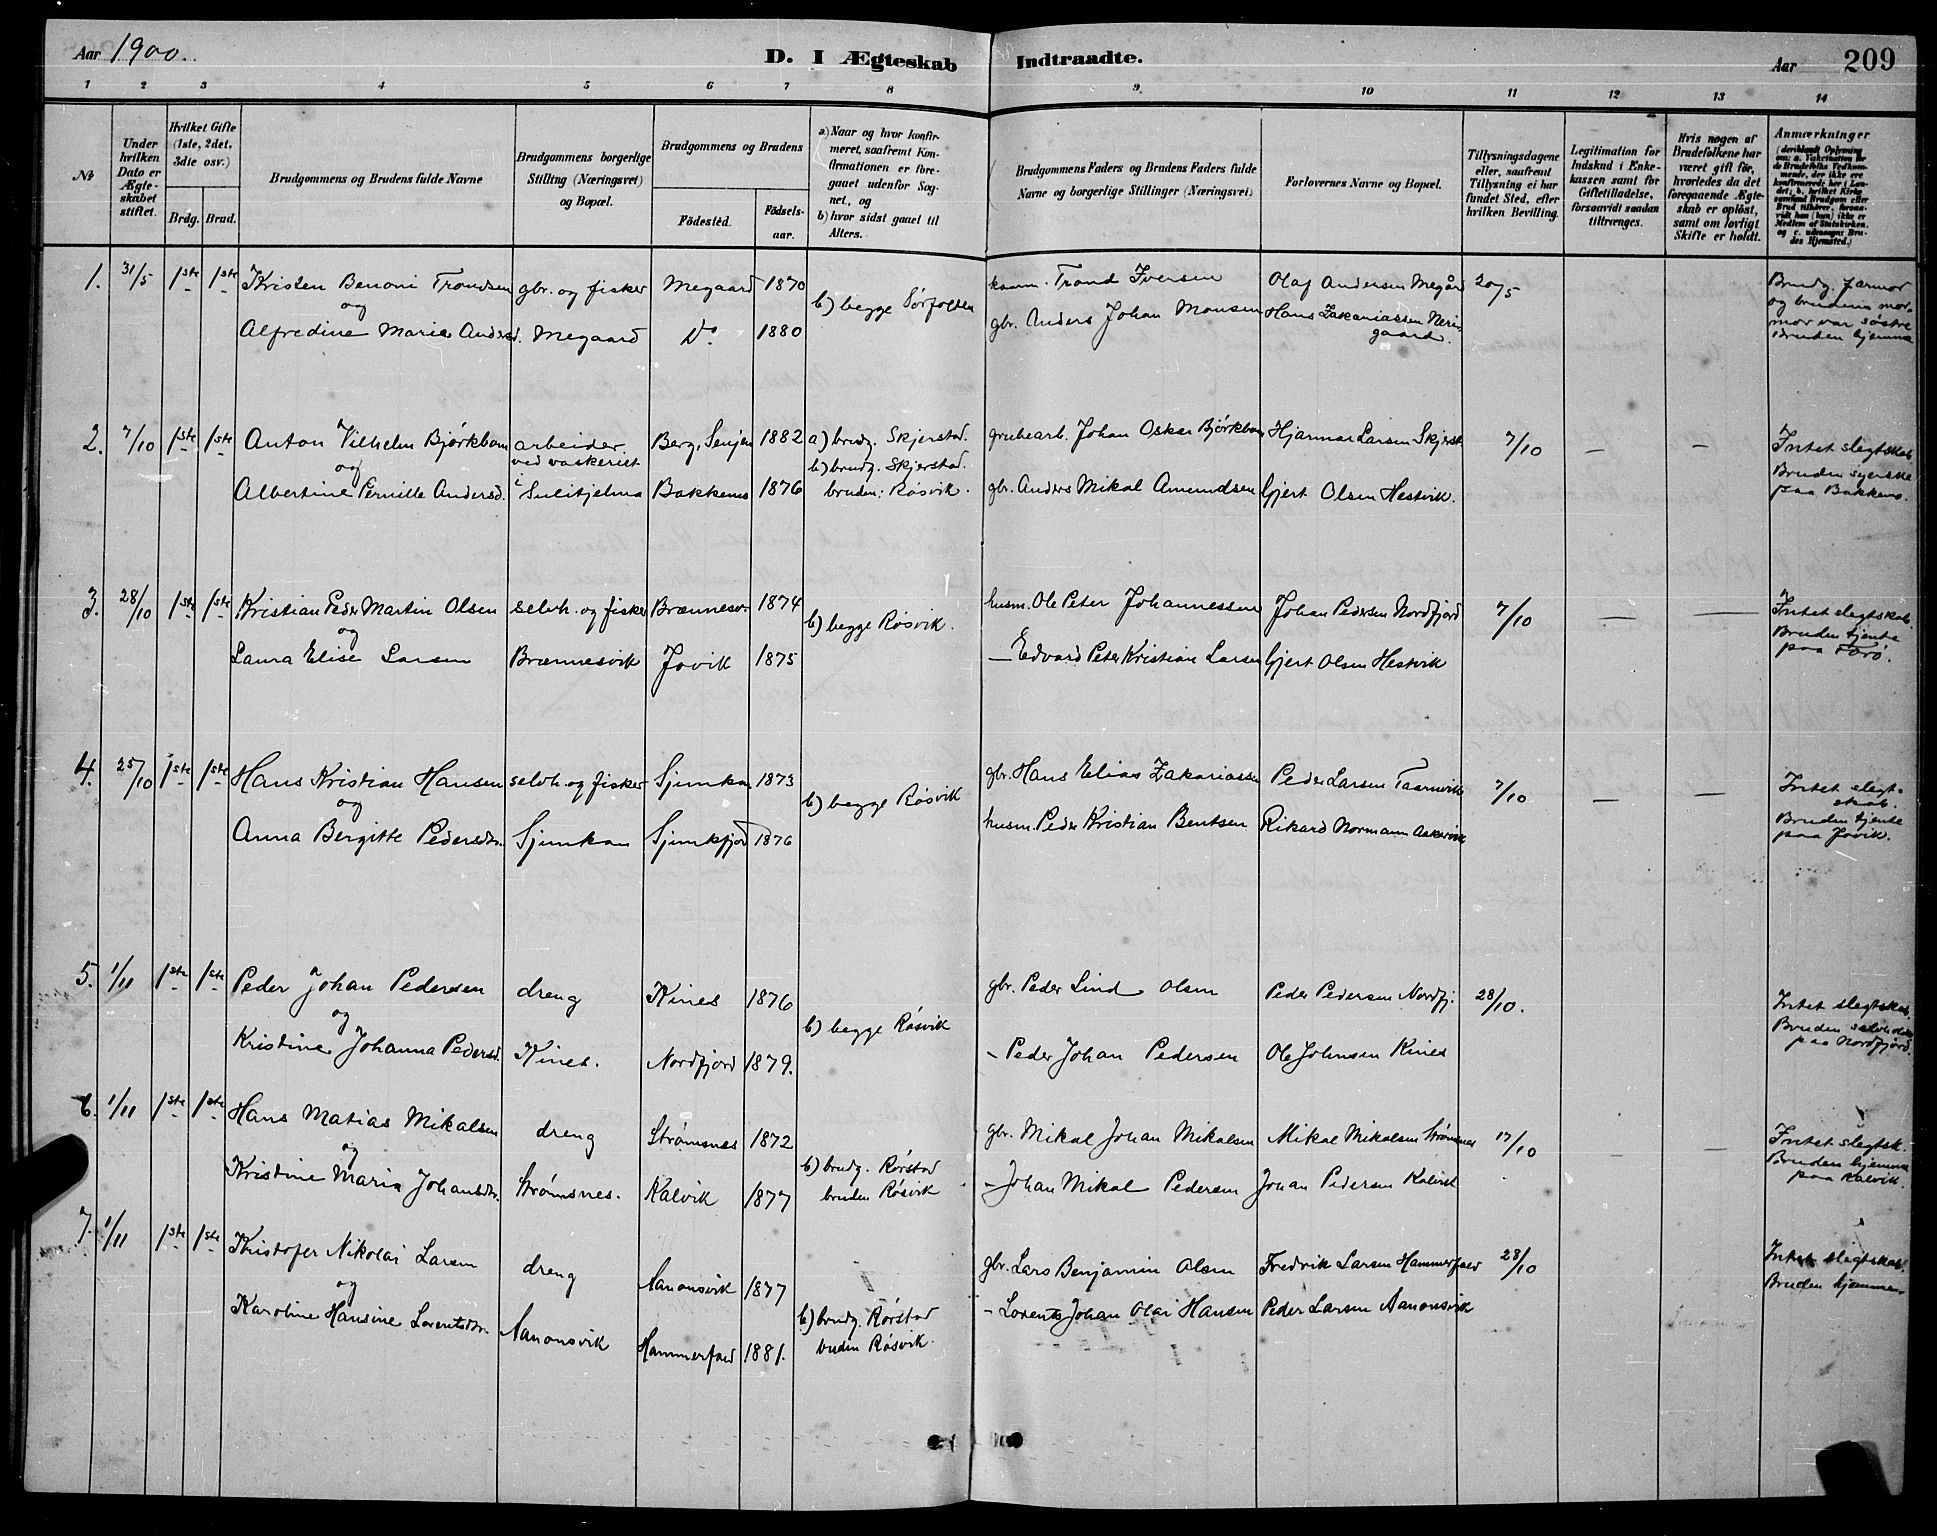 Aar 1900. D. I Ægteskab Indtraadte. Aar 209
1 2 3 4 5 6 7 8 9 10 11 12 13 14
№
Under hvilken Dato er Ægteskabet stiftet.
Hvilket Gifte (1ste, 2det, 3die osv.)
Brdg. Brud.
Brudgommens og Brudens fulde Navne
Brudgommens borgerlige Stilling (Næringsvei) og Bopæl.
Brudgommens og Brudens
Fødested.
Fødselsaar.
a) Naar og hvor konfirmeret, saafremt Konfirmationen er foregaaet udenfor Sognet, og
b) hvor sidst gaaet til Alters.
Brudgommens Faders og Brudens Faders fulde Navne og borgerlige Stillinger (Næringsvei)
Forlovernes Navne og Bopæl.
Tillysningsdagene eller, saafremt Tillysning ei har fundet Sted, efter hvilken Bevilling.
Legitimation for Indskud i Enkekassen samt for Giftetilladelse, forsaavidt saadan tiltrænges.
Hvis nogen af Brudefolkene har været gift før, hvorledes da det foregaaende Ægteskab er opløst, samt om lovligt Skifte er holdt.
Anmærkninger
(deriblandt Oplysning om: a. Vaksination for de Brudefolks Vedkommende, der ikke ere konfirmerede her i Landet; b. hvilket Kirkesamfund Brudgom eller Brud tilhører, forsaavidt han (hun) ikke er Medlem af Statskirken, og c. udensogns Brudes Hjemsted.)
1. 31/5 1ste 1ste Kristen Benoni Trondsen gbr. og fisker Megaard 1870 b) begge Sørfolden Trond Iversen Olaf Andersen Megård 20/5 Brudg. farmor
og og brudens mor-
Alfredine Maria Andersd. Megaard Do 1880 gbr. Anders Johan Monsen Hans Zakariassen Neri- mor var søstre
gaard. Bruden hjemme
2. 7/10 1ste 1ste Anton Vilhelm Bjørkbom arbeider Berg, Senjen 1882 a) brudg. Skjerstad. grubearb. Johan Oskar Bjørkbom Hjarmar Larsen Skjerst. 7/10 — — Intet slegtskab.
og ved vaskeriet b) brudg. Skjerstad. Bruden syerske
Albertine Pernille Andersd. i Sulitjelma Bakkemo 1876 bruden: Røsvik. gbr. Anders Mikal Amundsen Gjert Olsen Hestvik. paa Bakkemo.
3. 28/10 1ste 1ste Kristian Peder Martin Olsen selvh. og fisker Brænnesv. 1874 b) begge Røsvik. husm. Ole Peter Johannessen Johan Pedersen Nordfjord 7/10 — — Intet slegtskab.
og Bruden tjente
Laura Elise Larsen Brænnesvik Jovik 1875 — Edvard Peter Kristian Larsen Gjert Olsen Hestvik paa Færø.
4. 25/10 1ste 1ste Hans Kristian Hansen selvh. og fisker Sjunkan 1873 b) begge Røsvik gbr. Hans Elias Zakariassen Peder Larsen Taarnvik 7/10 — — Intet slegt-
og skab.
Anna Bergitte Pedersdtr. Sjunkan Sjunkfjord 1876 husm. Peder Kristian Bentsen Rikard Normann Aakervik Bruden tjente
paa Jovik.
5. 1/11 1ste 1ste Peder Johan Pedersen dreng Kines 1876 b) begge Røsvik gbr. Peder Lind Olsen Peder Pedersen Nordfj. 28/10. Intet slegtskab.
og Bruden
Kristine Johanna Pedersd. Kines. Nordfjord 1879. - Peder Johan Pedersen Ole Johnsen Kines paa Nordfjord.
6. 1/11 1ste 1ste Hans Matias Mikalsen dreng Strømsnes 1872 b) brudg. Rørstad gbr. Mikal Johan Mikalsen Mikal Mikalsen Strømsnes 17/10 — — Intet slegtsk.
og Bruden hjemme
Kristine Maria Johansdtr. Strømsnes. Kalvik 1877 bruden Røsvik - Johan Mikal Pedersen Johan Pedersen Kalvik paa Kalvik.
7. 1/11 1ste 1ste Kristofer Nikolai Larsen dreng Aanonsvik 1877 b) brudg. Rørstad gbr. Lars Benjamin Olsen Fredrik Larsen Hammerfald 28/10 Intet slegtskab.
og Bruden hjemme.
Karoline Hansine Lorentsdtr. Aanonsvik Hammerfald 1881. bruden Røsvik. - Lorents Johan Olai Hansen Peder Larsen Aanonsvik